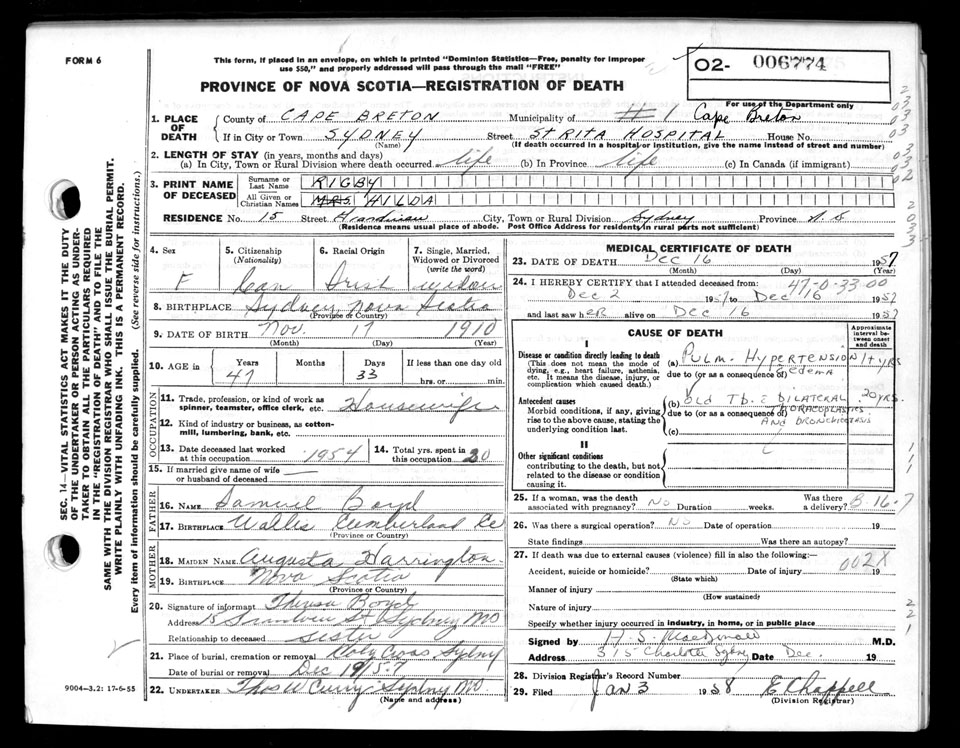 FORM 6
This form, if placed in an envelope, on which is printed "Dominion Statistics—Free, penalty for improper
use $50," and properly addressed will pass through the mail "FREE"
02- 006774
PROVINCE OF NOVA SCOTIA—REGISTRATION OF DEATH
For use of the Department only
1. PLACE OF DEATH
County of CAPE BRETON Municipality of # 1 Cape Breton
If in City or Town SYDNEY Street ST RITA HOSPITAL House No.
(Name) (If death occurred in a hospital or institution, give the name instead of street and number)
2. LENGTH OF STAY (in years, months and days)
(a) In City, Town or Rural Division where death occurred life (b) In Province life (c) In Canada (if immigrant)
3. PRINT NAME OF DECEASED
Surname or Last Name RIGBY
All Given or Christian Names MRS. HILDA
RESIDENCE No. 15 Street City, Town or Rural Division Sydney Province N.S
(Residence means usual place of abode. Post Office Address for residents in rural parts not sufficient)
4. Sex F
5. Citizenship (Nationality) Can
6. Racial Origin Irish
7. Single, Married, Widowed or Divorced (write the word) widow
8. BIRTHPLACE Sydney Nova Scotia
(Province or Country)
9. DATE OF BIRTH Nov. 17 1910
(Month) (Day) (Year)
10. AGE in Years 47 Months Days 33 If less than one day old hrs. or min.
OCCUPATION
11. Trade, profession, or kind of work as spinner, teamster, office clerk, etc. Housewife
12. Kind of industry or business, as cotton-mill, lumbering, bank, etc.
13. Date deceased last worked at this occupation 1954
14. Total yrs. spent in this occupation 20
15. If married give name of wife or husband of deceased
FATHER
16. NAME Samuel Boyd
17. BIRTHPLACE Wallis Cumberland Co
(Province or Country)
MOTHER
18. MAIDEN NAME Augusta Harrington
19. BIRTHPLACE Nova Scotia
(Province or Country)
20. Signature of informant Theresa Boyd
Address 15 St Sydney
Relationship to deceased sister
21. Place of burial, cremation or removal Holy Cross Sydney
Date of burial or removal Dec 19/57
22. UNDERTAKER Thos W Curry Sydney
(Name and address)
MEDICAL CERTIFICATE OF DEATH
23. DATE OF DEATH Dec 16 1957
(Month) (Day) (Year)
47-0-33-00
24. I HEREBY CERTIFY that I attended deceased from:
Dec 2 1957 to Dec 16 1957
and last saw her alive on Dec 16 1957
CAUSE OF DEATH
Approximate interval between onset and death
I
Disease or condition directly leading to death
(This does not mean the mode of dying, e.g., heart failure, asthenia, etc. It means the disease, injury, or complication which caused death.)
(a) PULM. HYPERTENSION 1+ yrs
due to (or as a consequence of) edema
Antecedent causes
Morbid conditions, if any, giving rise to the above cause, stating the underlying condition last.
(b) OLD TB. c BILATERAL 20 yrs.
due to (or as a consequence of) THORACOPLASTIES
AND BRONCHIECTASIS
(c)
II
Other significant conditions
contributing to the death, but not related to the disease or condition causing it.
25. If a woman, was the death associated with pregnancy? No Duration weeks. Was there a delivery? B-16-7
26. Was there a surgical operation? No Date of operation 19
State findings Was there an autopsy?
27. If death was due to external causes (violence) fill in also the following:—
Accident, suicide or homicide? Date of injury 19 002X
(State which)
Manner of injury
(How sustained)
Nature of injury
Specify whether injury occurred in industry, in home, or in public place
Signed by H. S. MacDonald M.D.
Address 315 Charlotte Sydney Date Dec. 19
28. Division Registrar's Record Number
29. Filed Jan 3 1958 E Chappell
(Division Registrar)
SEC. 14—VITAL STATISTICS ACT MAKES IT THE DUTY
OF THE UNDERTAKER OR PERSON ACTING AS UNDER-
TAKER TO OBTAIN ALL THE PARTICULARS REQUIRED
IN THE "REGISTRATION OF DEATH" AND TO FILE THE
SAME WITH THE DIVISION REGISTRAR WHO SHALL ISSUE THE BURIAL PERMIT.
WRITE PLAINLY WITH UNFADING INK. THIS IS A PERMANENT RECORD.
Every item of information should be carefully supplied. (See reverse side for instructions.)
9004—3.2: 17-6-55